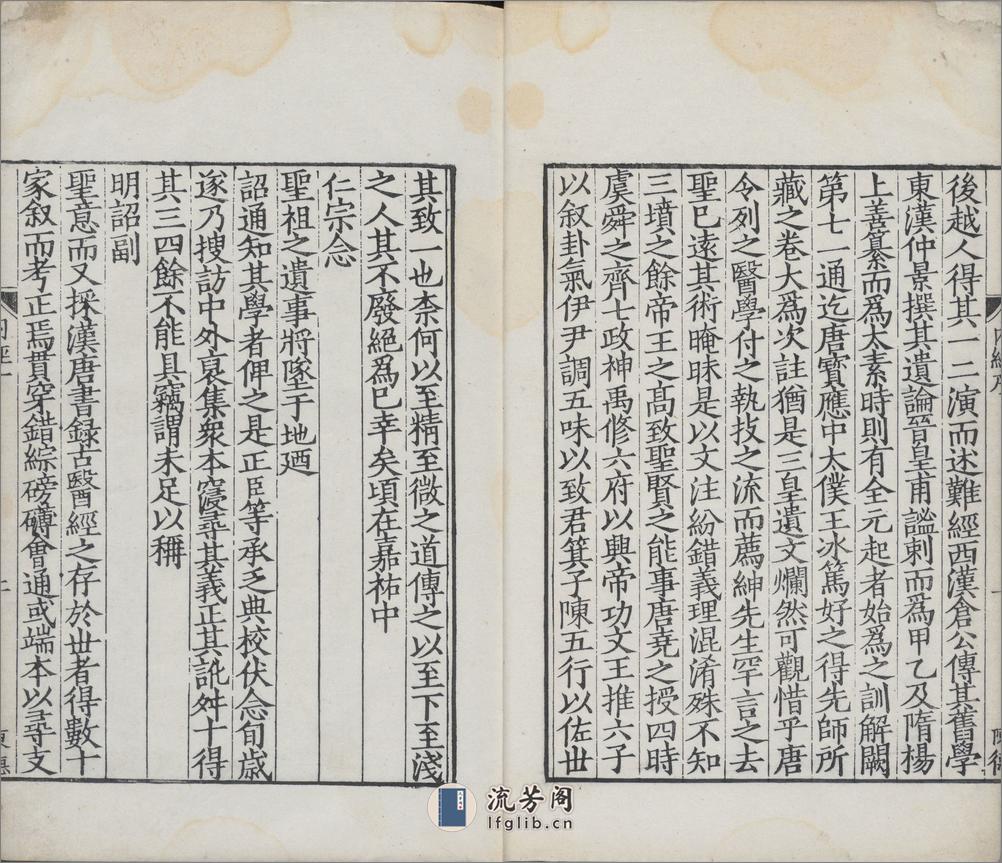 後越人得其一二演而述難經西漢倉公傳其舊學
東漢仲景撰其遺論晉皇甫謐刺而爲甲乙及隋楊
上善纂而爲太素時則有全元起者始爲之訓解闕
第七一通迄唐寶應中太僕王冰篤好之得先師所
藏之卷大爲次註猶是三皇遺文爛然可觀惜乎唐
令列之醫學付之執技之流而薦紳先生罕言之去
聖已遠其術晻昧是以文注紛錯義理混淆殊不知
三墳之餘帝王之高致聖賢之能事唐堯之授四時
虞舜之齊七政神禹修六府以興帝功文王推六子
以叙卦氣伊尹調五味以致君箕子陳五行以佐世
其致一也柰何以至精至微之道傳之以至下至淺
之人其不廢絕爲已幸矣頃在嘉祐中
仁宗念
聖祖之遺事將墜于地廼
詔通知其學者俾之是正臣等承乏典校伏念旬歲
遂乃搜訪中外裒集衆本寖尋其義正其訛舛十得
其三四餘不能具竊謂未足以稱
明詔副
聖意而又採漢唐書録古醫經之存於世者得數十
家叙而考正焉貫穿錯綜磅礴會通或端本以尋支
流芳阁
lfglib.cn